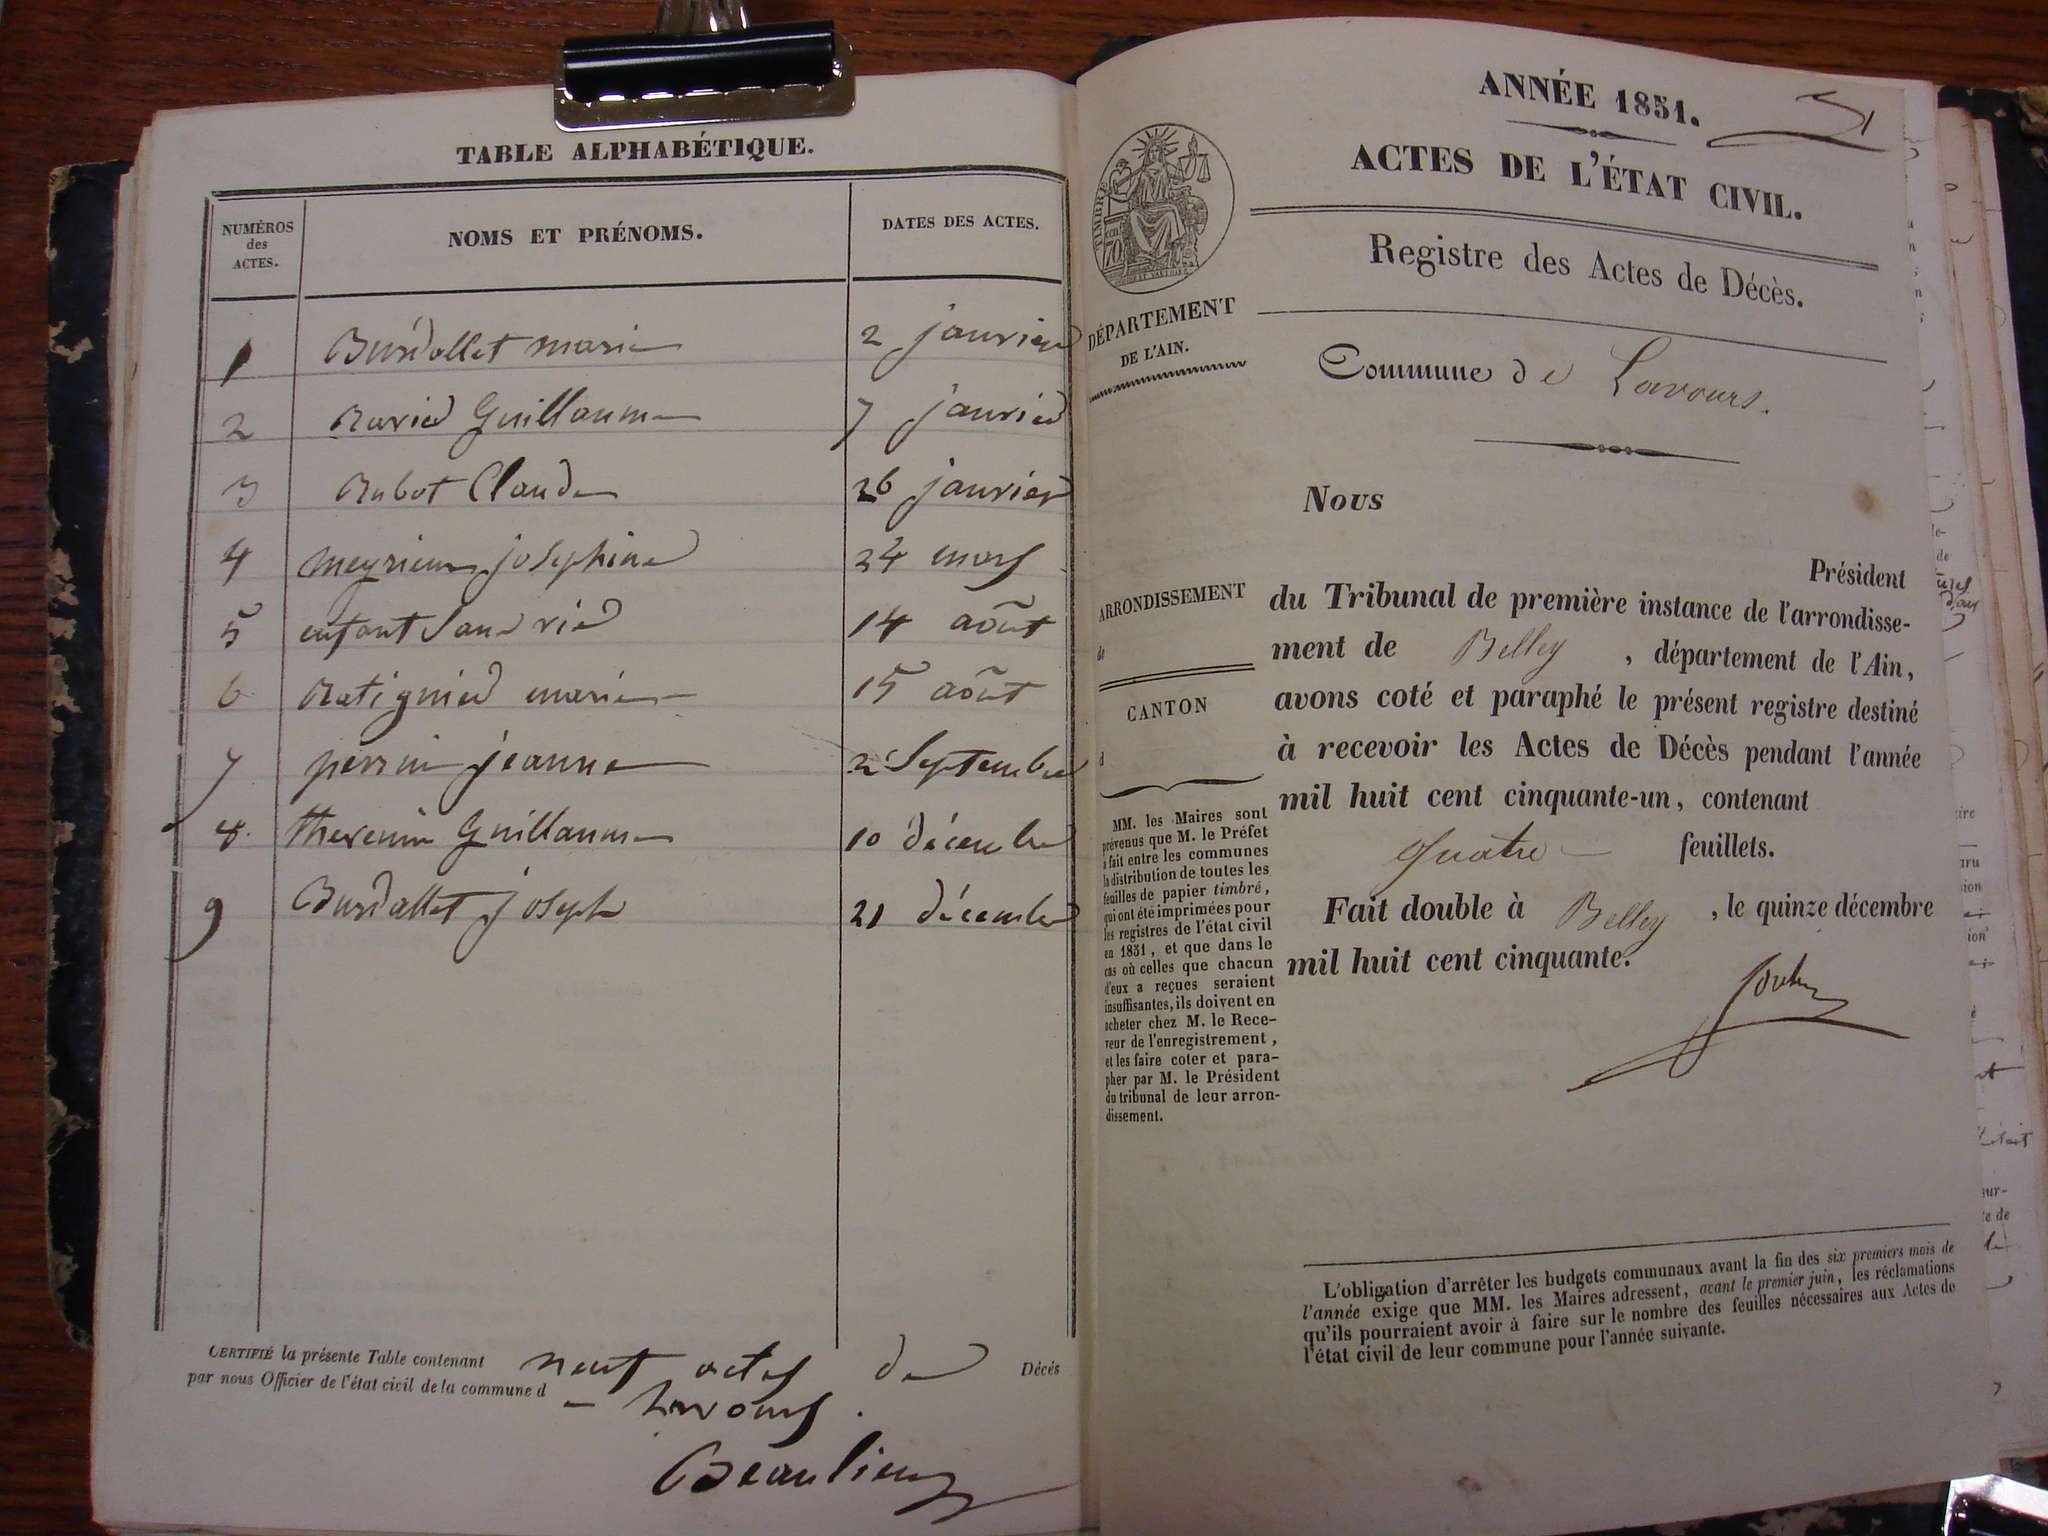 TABLE ALPHABÉTIQUE.
NUMÉROS des ACTES. NOMS ET PRÉNOMS. DATES DES ACTES.
1 Burdallet marie 2 janvier
2 Ravier Guillaume 7 janvier
3 Rubot Claude 26 janvier
4 meyrieux josephine 24 mars
5 enfant Jandrier 14 août
6 Ratignier marie 15 août
7 perrin jeanne 2 Septembre
8. thevenin Guillaume 10 décembre
9 Burdallet joseph 21 décembre
CERTIFIÉ la présente Table contenant neuf actes de Décès
par nous Officier de l'état civil de la commune d
- Lavours.
Beaulieu
ANNÉE 1851.
ACTES DE L'ÉTAT CIVIL.
TIMBRE
70
DÉPARTEMENT
DE L'AIN.
Registre des Actes de Décès.
Commune de Lavours.
Nous
Président
du Tribunal de première instance de l'arrondisse-
ment de Belley, département de l'Ain,
avons coté et paraphé le présent registre destiné
à recevoir les Actes de Décès pendant l'année
mil huit cent cinquante-un, contenant
quatre feuillets.
Fait double à Belley, le quinze décembre
mil huit cent cinquante.
ARRONDISSEMENT
de
CANTON
d
MM. les Maires sont
prévenus que M. le Préfet
a fait entre les communes
la distribution de toutes les
feuilles de papier timbré,
qui ont été imprimées pour
les registres de l'état civil
en 1851, et que dans le
cas où celles que chacun
d'eux a reçues seraient
insuffisantes, ils doivent en
acheter chez M. le Rece-
veur de l'enregistrement,
et les faire coter et para-
pher par M. le Président
du tribunal de leur arron-
dissement.
L'obligation d'arrêter les budgets communaux avant la fin des six premiers mois de
l'année exige que MM. les Maires adressent, avant le premier juin, les réclamations
qu'ils pourraient avoir à faire sur le nombre des feuilles nécessaires aux Actes de
l'état civil de leur commune pour l'année suivante.